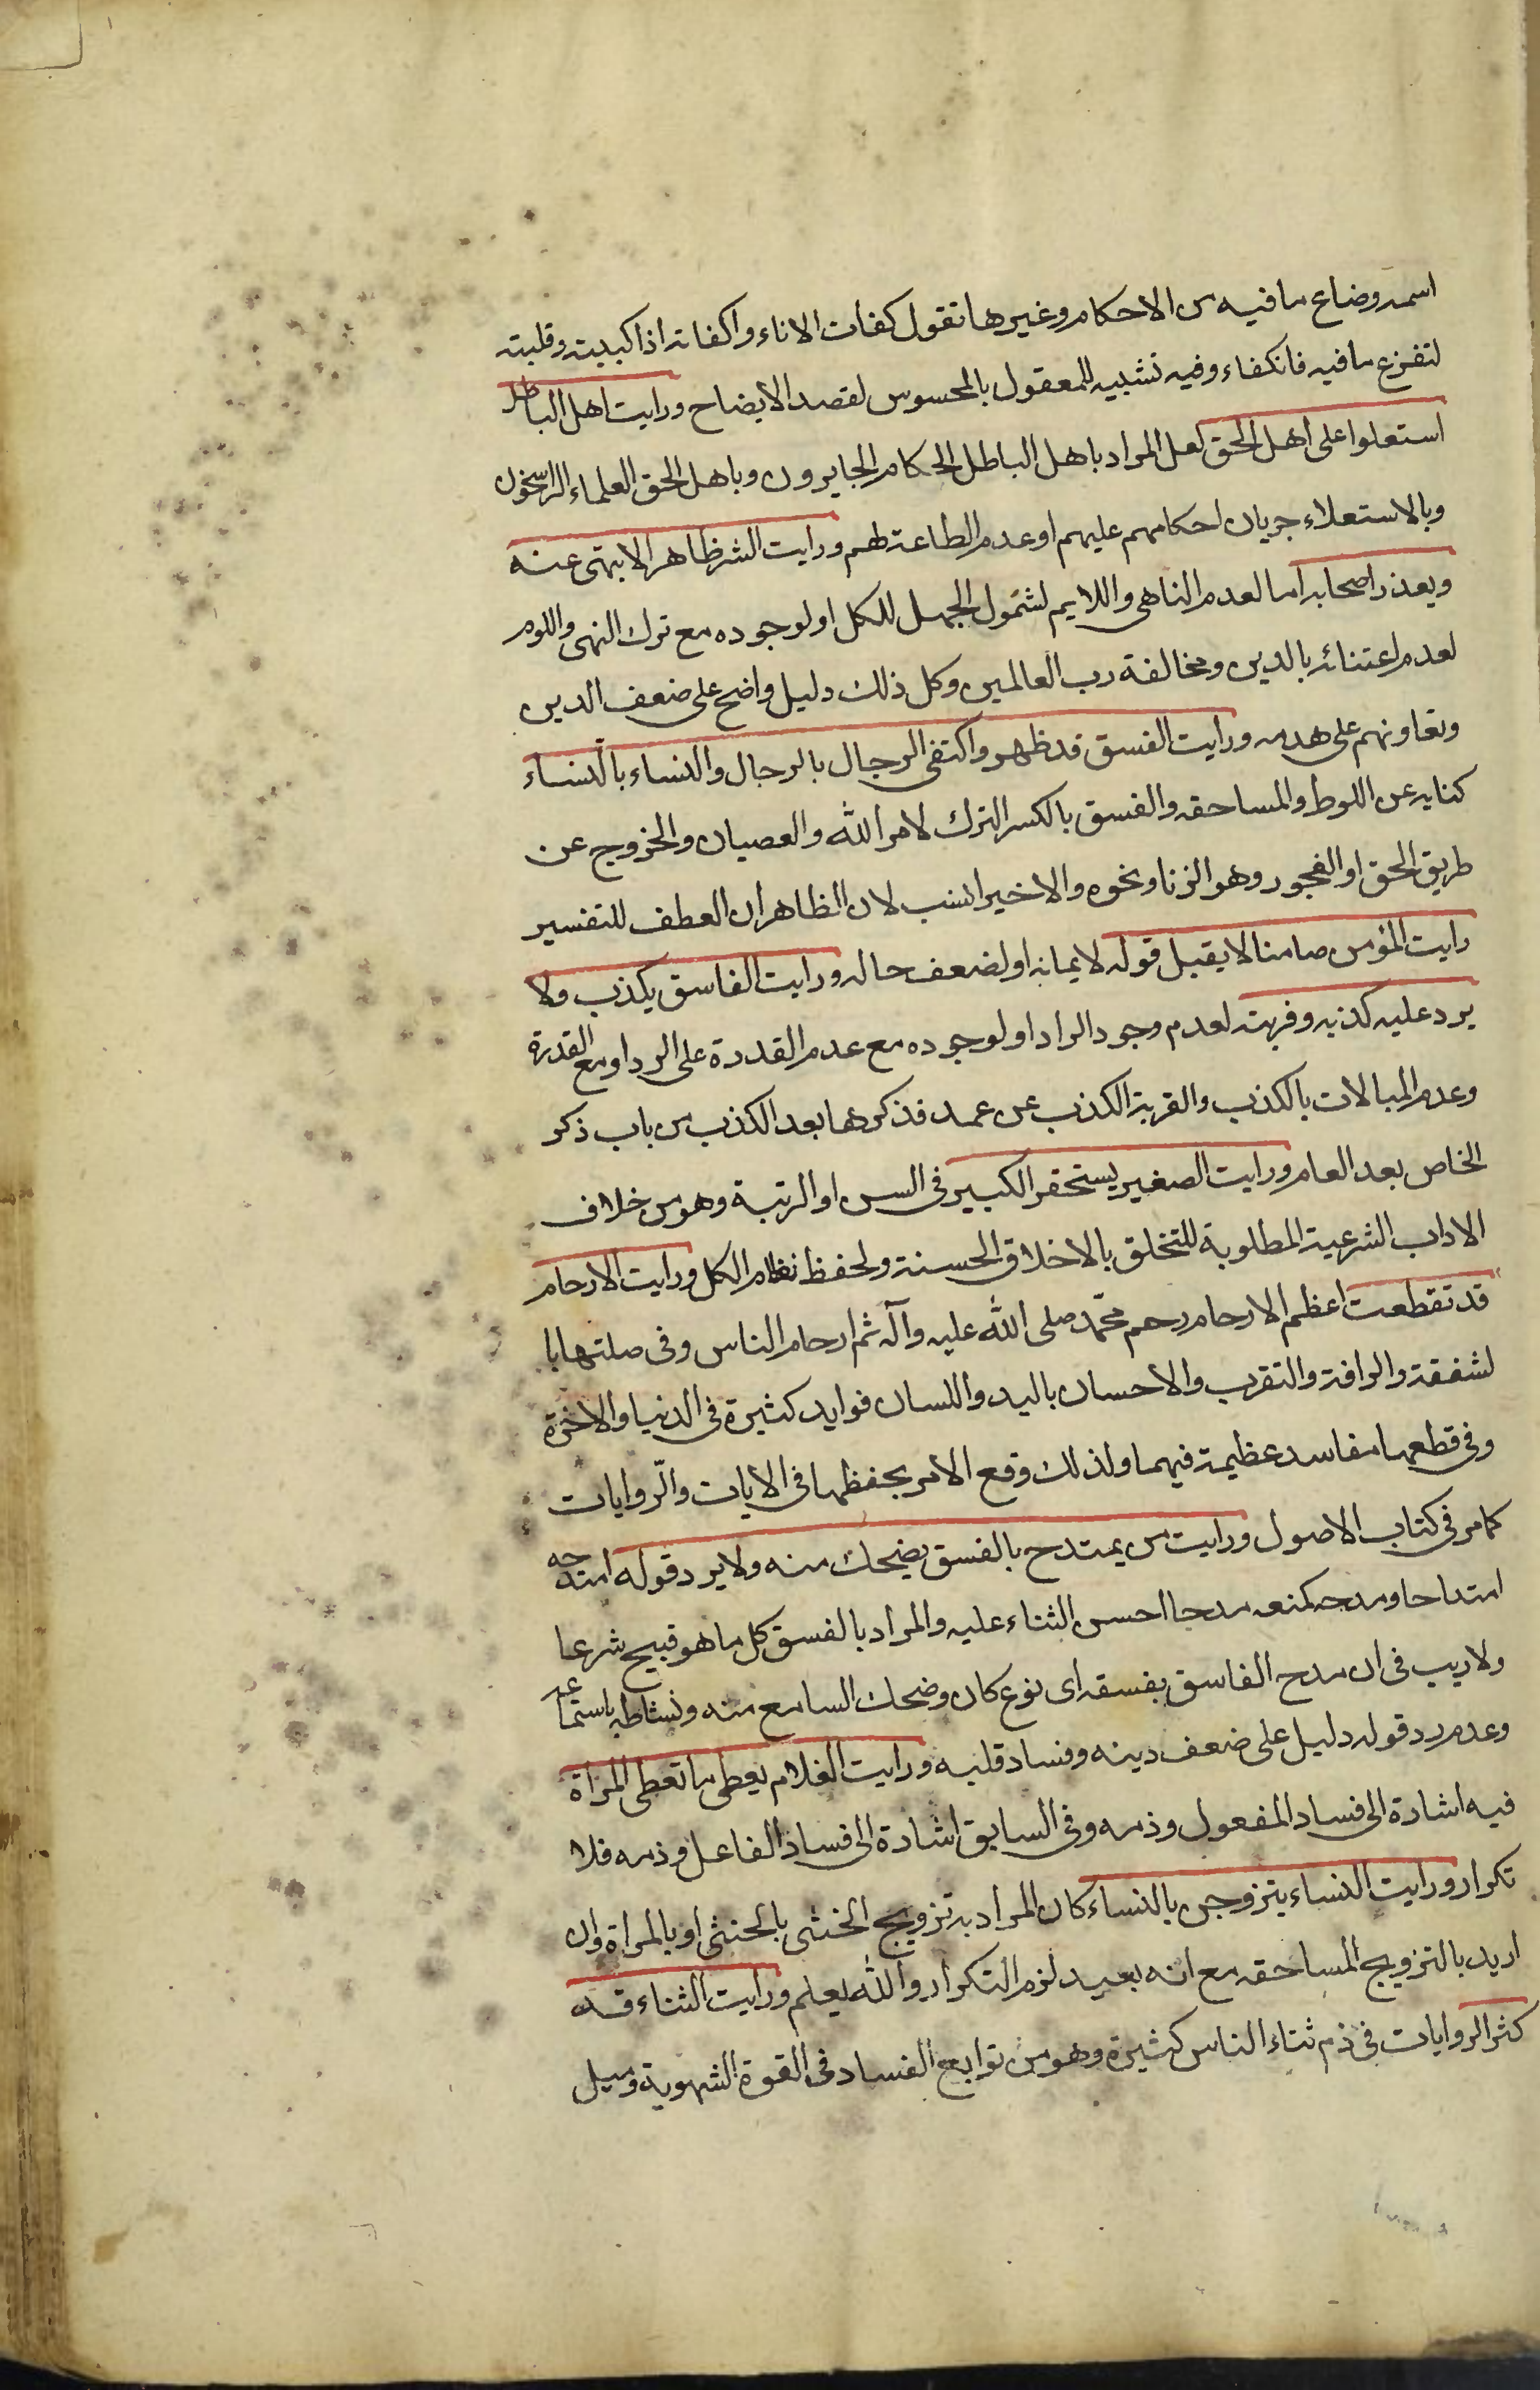 اسمه وضاع ما فيه من الاحكام وغيرها تقول كفات الاناء واكفاته اذا كببته وقلبته
لتفرغ ما فيه فانكفاء وفيه تشبيه للمعقول بالمحسوس لقصد الايضاح ورايت اهل الباطل
استعلوا على اهل الحق لعل المراد باهل الباطل الحكام الجايرون وباهل الحق العلماء الراسخون
وبالاستعلاء جريان احكامهم عليهم او عدم الطاعة لهم ورايت الشر ظاهرا لا ينهى عنه
ويعذر اصحابه اما لعدم الناهى واللايم لشمول الجهل للكل او لوجوده مع ترك النهى واللوم
لعدم اعتنائه بالدين ومخالفة رب العالمين وكل ذلك دليل واضح على ضعف الدين
وتعاونهم على هدمه ورايت الفسق قد ظهر واكتفى الرجال بالرجال والنساء بالنساء
كنايه عن اللوط والمساحقه والفسق بالكسر الترك لامر الله والعصيان والخروج عن
طريق الحق او الفجور وهو الزنا ونحوه والاخير انسب لان الظاهر ان العطف للتفسير
رايت المؤمن صامتا لا يقبل قوله لايمانه او لضعف حاله ورايت الفاسق يكذب ولا
يرد عليه كذبه وفريته لعدم وجود الراد او لوجوده مع عدم القدرة على الرد او مع القدرة
وعدم المبالات بالكذب والفرية الكذب عن عمد فذكرها بعد الكذب من باب ذكر
الخاص بعد العام ورايت الصغير يستحقر الكبير فى السن او الرتبة وهو من خلاف
الاداب الشرعية المطلوبة للتخلق بالاخلاق الحسنة ولحفظ نظام الكل ورايت الارحام
قد تقطعت اعظم الارحام رحم محمّد صلى الله عليه وآله ثم ارحام الناس وفى صلتها با
لشفقة والرافة والتقرب والاحسان باليد واللسان فوايد كثيرة فى الدنيا والاخرة
وفى قطعها مفاسد عظيمة فيهما ولذلك وقع الامر بحفظها فى الايات والرّوايات
كما مر فى كتاب الاصول ورايت من يمتدح بالفسق يضحك منه ولا يرد قوله امتدحه
امتداحا ومدحه كمنعه مدحا احسن الثناء عليه والمراد بالفسق كل ما هو قبيح شرعا
ولا ريب فى ان مدح الفاسق بفسقه اى نوع كان وضحك السامع منه ونشاطه باستماعه
وعدم رد قوله دليل على ضعف دينه وفساد قلبه ورايت الغلام يعطى ما تعطى المراة
فيه اشادة الى فساد المفعول وذمه وفى السابق اشادة الى فساد الفاعل وذمه فلا
تكرار ورايت النساء يتزوجن بالنساء كان المراد به تزويج الخنثى بالخنثى او بالمراة وان
اريد بالتزويج المساحقه مع انه بعيد لزم التكرار والله يعلم ورايت الثناء قد
كثر الروايات فى ذم ثناء الناس كثيرة وهو من توابع الفساد فى القوة الشهوية وميل